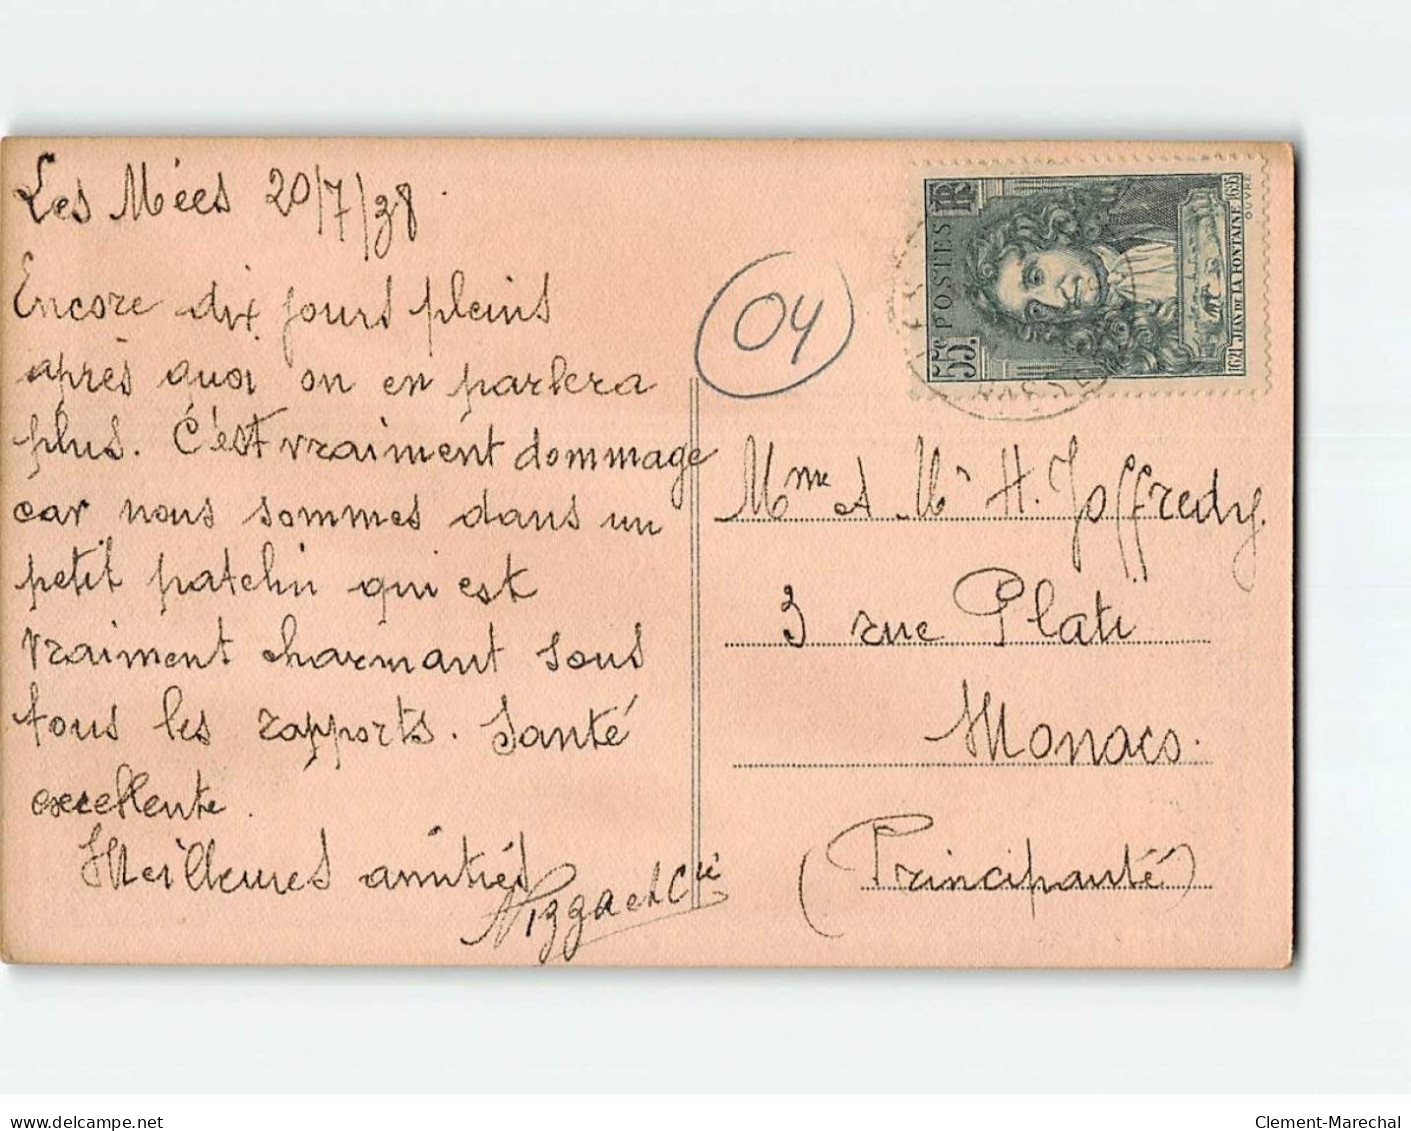 Les Mées 20/7/38.
Encore dix jours pleins
après quoi on en parlera
plus. C'est vraiment dommage
car nous sommes dans un
petit patelin qui est
vraiment charmant sous
tous les rapports. Santé
excellente.
Meilleures amitiés
Nizza et Cie
04
RF
POSTES
55c.
1621 JEAN DE LA FONTAINE 1695
OUVRÉ
Mme A Mr H. Joffredy.
3 rue Plati
Monaco.
(Principauté)
www.delcampe.net
Clement-Marechal